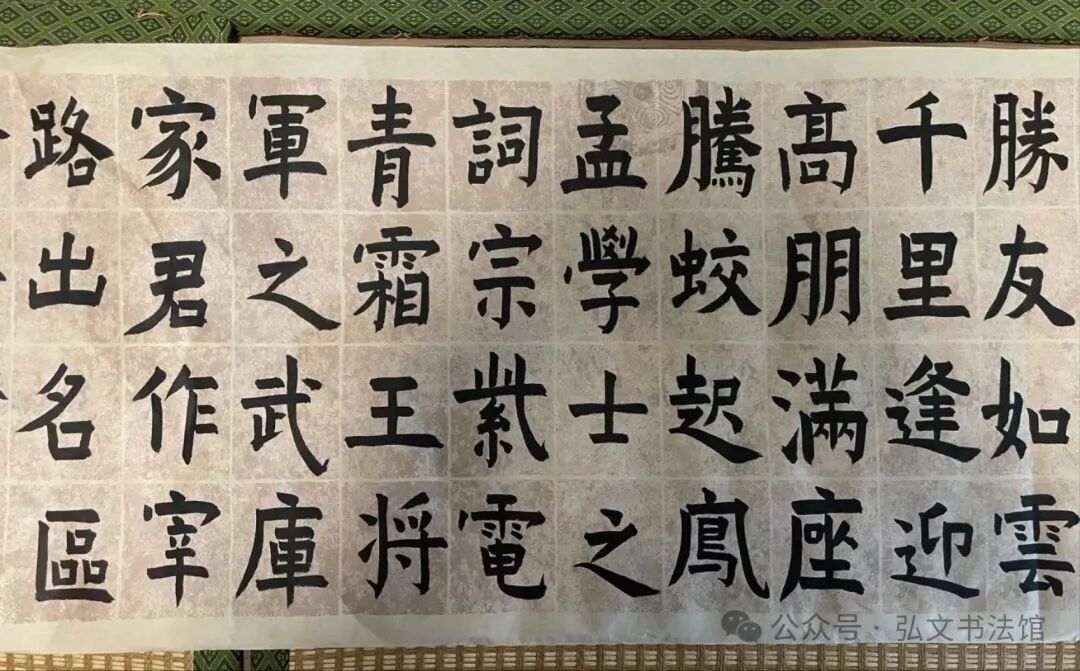 勝友如雲
千里逢迎
髙朋滿座
騰蛟起鳳
孟學士之
詞宗紫電
青霜王将
軍之武庫
家君作宰
路出名區
公众号 · 弘文书法馆